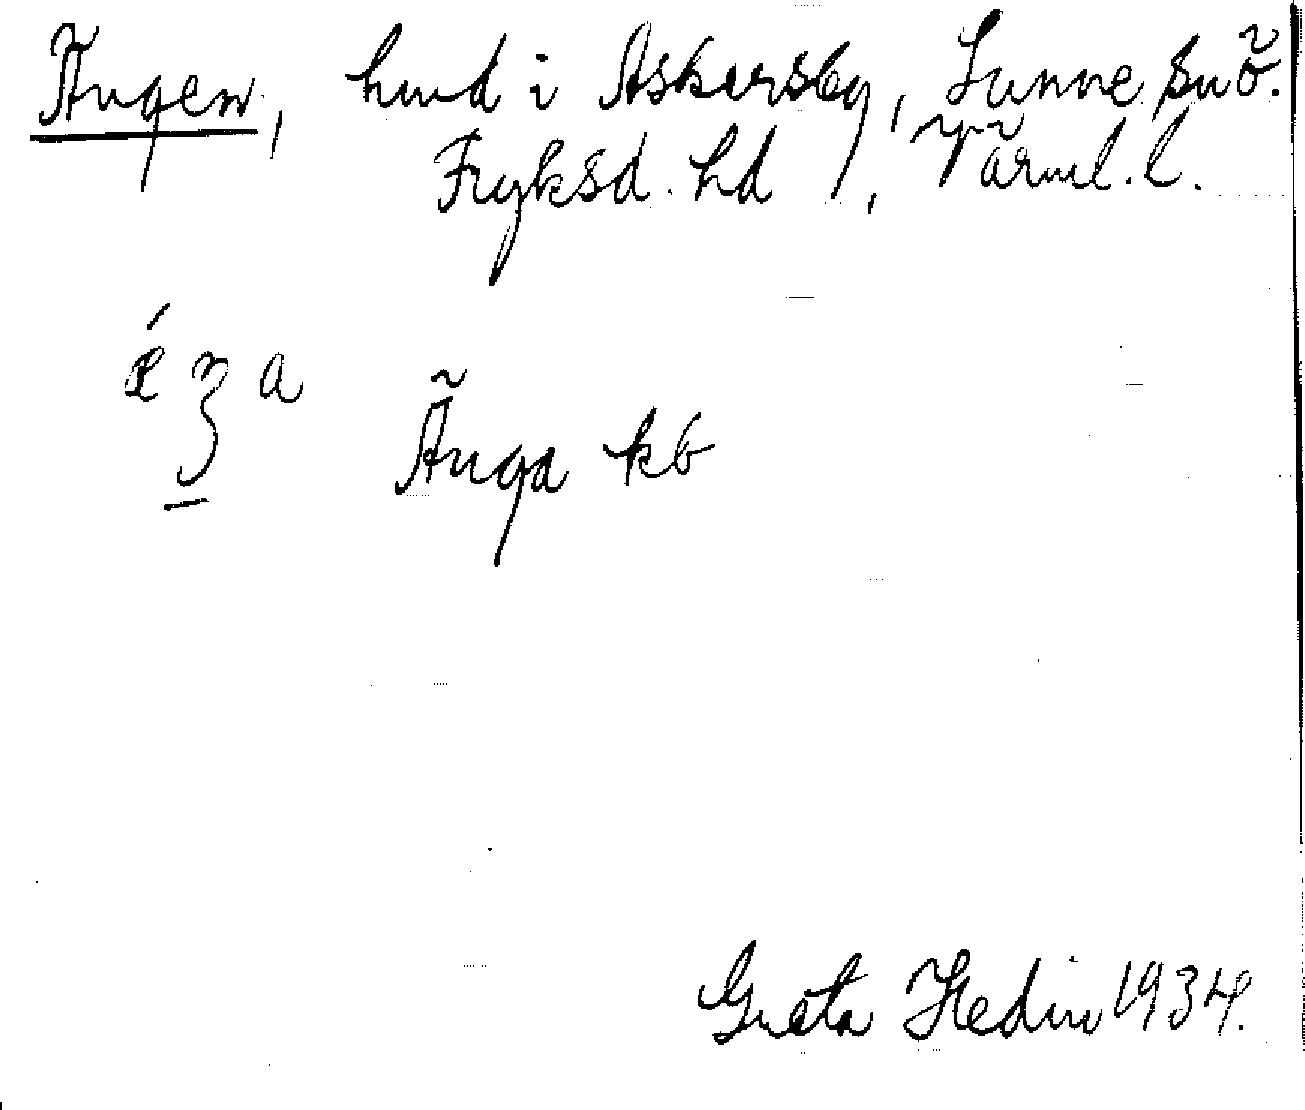 Ängen, hmd i Askersby, Sunne snö.
Fryksd. hd, Värml. l.
Änga kb
Greta Hedin 1934.